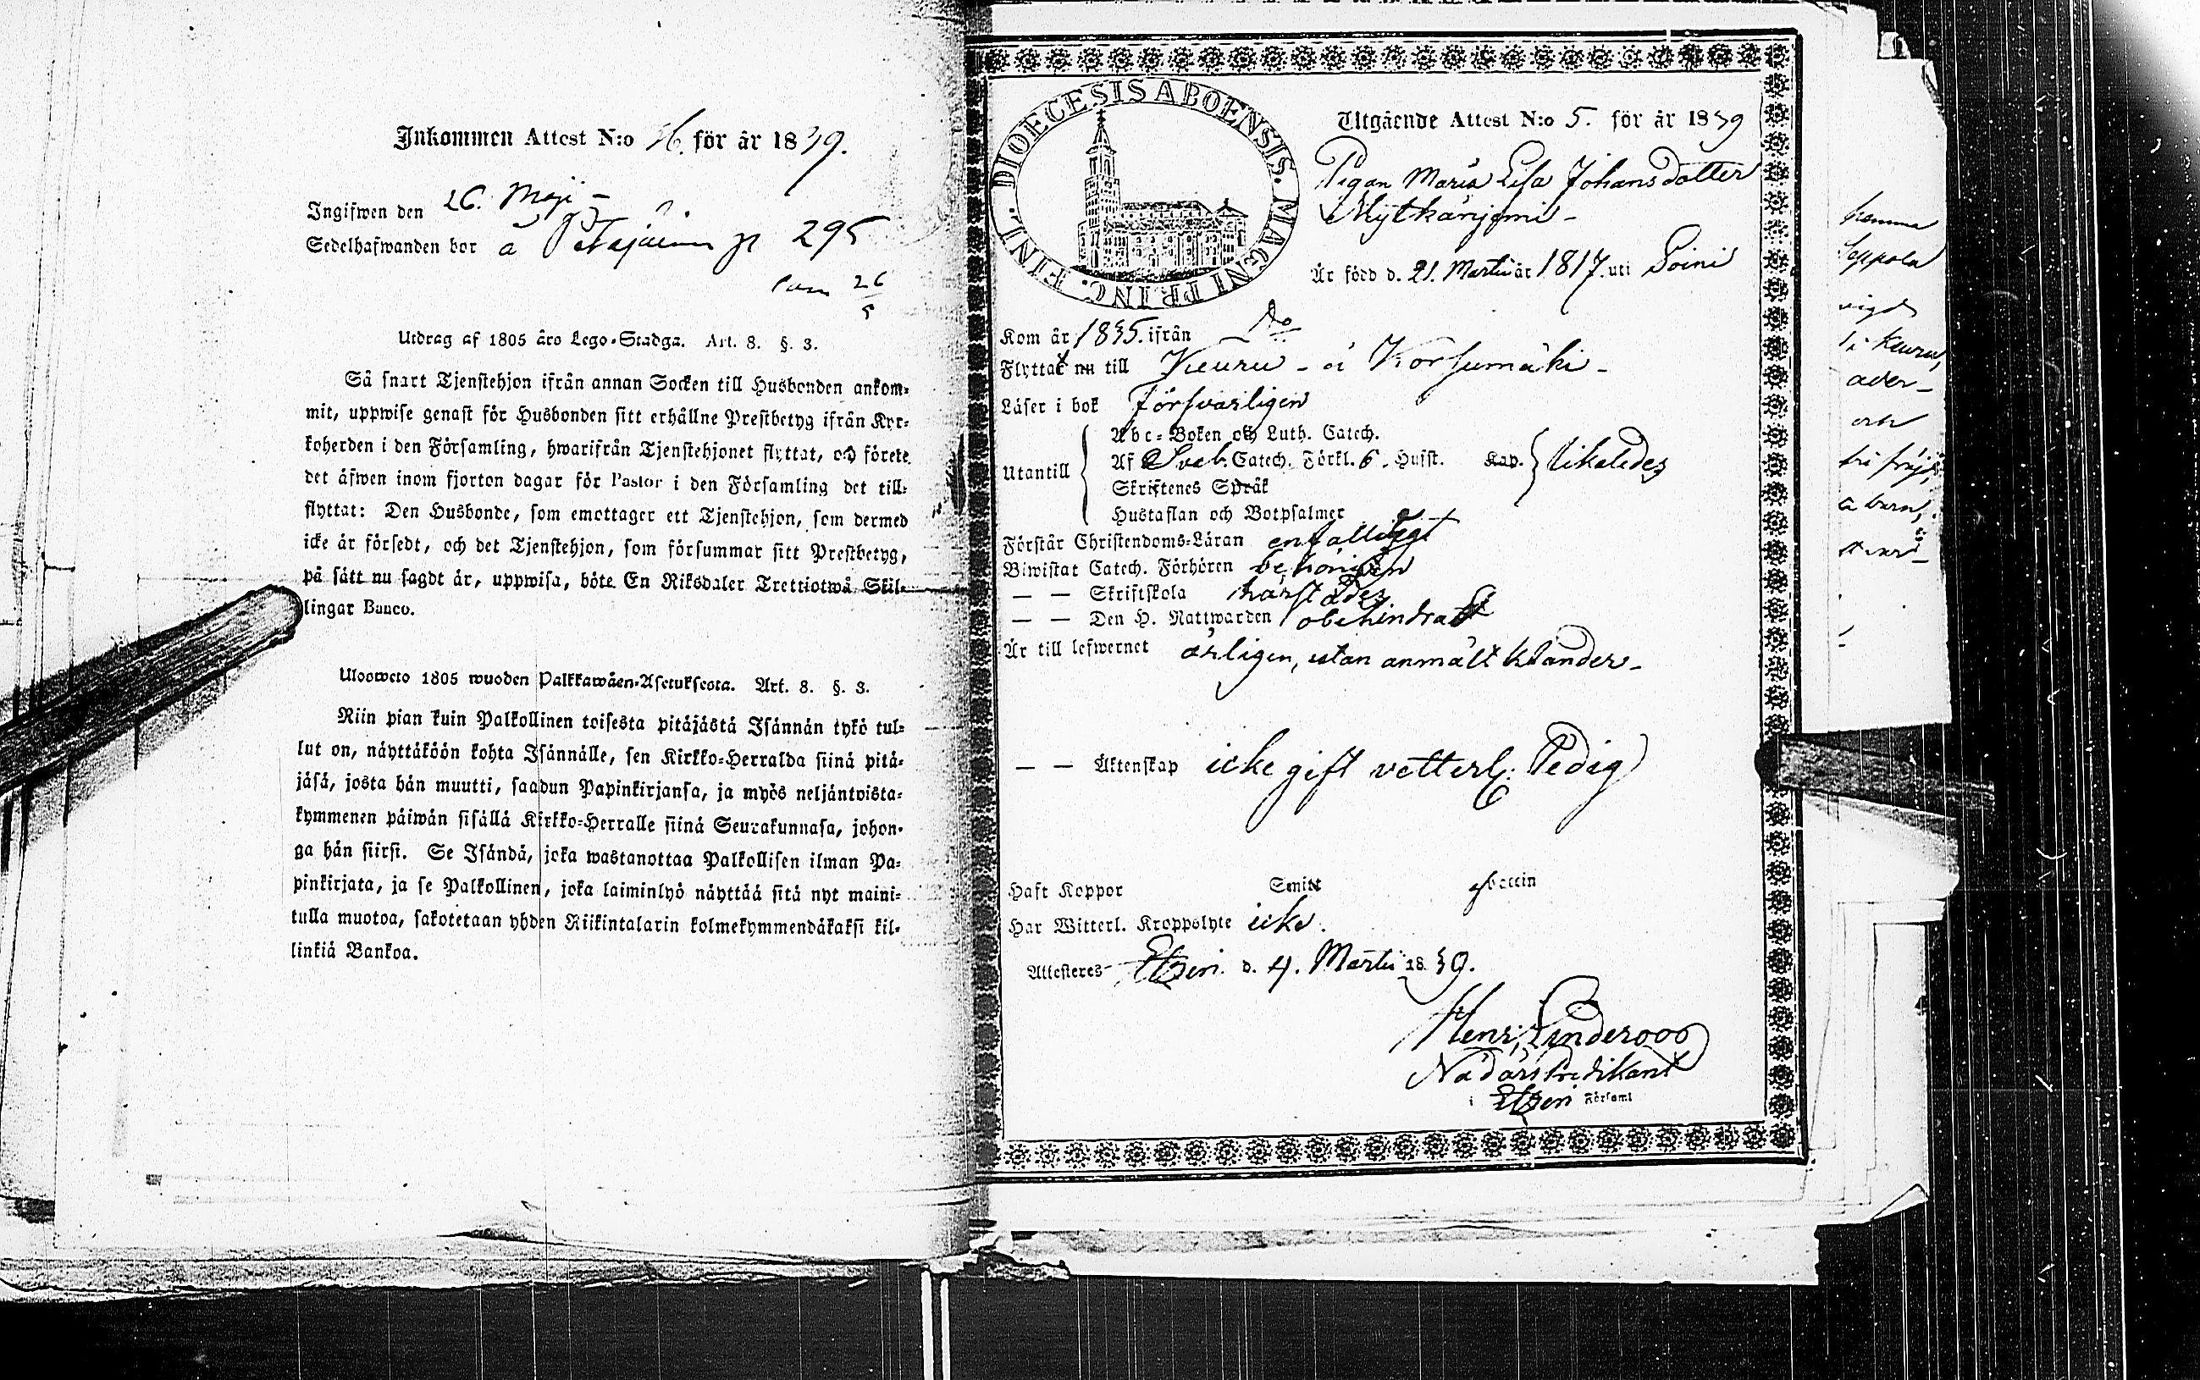 Inkommen Attest N:o 36. för år 1839.
Ingifwen den 26. Maji –
Sedelhafwanden bor å Petäjäinen p 295
26
5
Utdrag af 1805 års Lego-Stadga. Art. 8. §. 3.
Så snart Tjenstehjon ifrån annan Socken till Husbonden ankom-
mit, uppwise genast för Husbonden sitt erhållne Prestbetyg ifrån Kyr-
koherden i den Församling, hwarifrån Tjenstehjonet flyttat, och förete
det äfwen inom fjorton dagar för Pastor i den Församling det till-
flyttat: Den Husbonde, som emottager ett Tjenstehjon, som dermed
icke är försedt, och det Tjenstehjon, som försummar sitt Prestbetyg,
på sätt nu sagdt är, uppwisa, böte En Riksdaler Trettiotwå Skil-
lingar Banco.
Ulosweto 1805 wuoden Palkkawäen-Asetuksesta. Art. 8. §. 3.
Niin pian kuin Palkollinen toisesta pitäjästä Isännän tykö tul-
lut on, näyttäköön kohta Isännälle, sen Kirkko-Herralda siinä pitä-
jäsä, josta hän muutti, saadun Papinkirjansa, ja myös neljäntoista-
kymmenen päiwän sisällä Kirkko-Herralle siinä Seurakunnasa, johon-
ga hän siirsi. Se Isändä, joka wastanottaa Palkollisen ilman Pa-
pinkirjata, ja se Palkollinen, joka laiminlyö näyttää sitä nyt maini-
tulla muotoa, sakotetaan yhden Riikintalarin kolmekymmendäkaksi kil-
linkiä Bankoa.
DIOECESIS ABOENSIS. MAGNI PRINC. FINL.
Utgående Attest N:o 5. för år 1839
Pigan Maria Lisa Johansdotter
Mytkänjemi –
Är född d. 21. Martii år 1817. uti Soini
Kom år 1835. ifrån Do
Flyttat nu till Keuru – å Korsumäki –
Läser i bok försvarligen
Utantill
Abc-Boken och Luth. Catech.
Af Sveb. Catech. Förkl. 6. Hufst. Kap. likaledes
Skriftenes Språk
Hustaflan och Botpsalmer
Förstår Christendoms-Läran enfalldigt
Biwistat Catech. Förhören behörigen
— — Skriftskola härstädes
— — Den H. Nattwarden obehindrad
Är till lefwernet ärligen, utan anmält klander –
— — Äktenskap icke gift vetterl: ledig
Haft Koppor Smitt Vaccin
Har Witterl. Kroppslyte icke.
Attesteres Etzeri d. 4. Martii 1839.
Henr, Linderoos
Nådårs Predikant
i Etzeri Församl
hemma
Seppola
vigd
i Keuru,
och
barn,